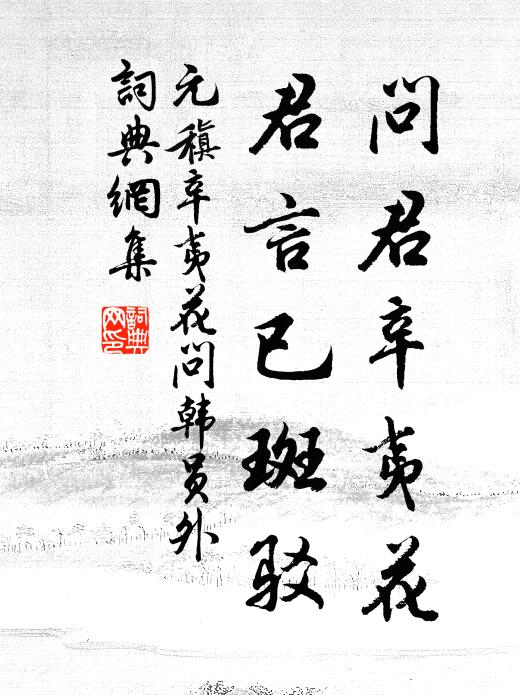 問君辛夷花
君言已斑駁
元稹辛夷花问韩员外
詞典網集
詞典
网印